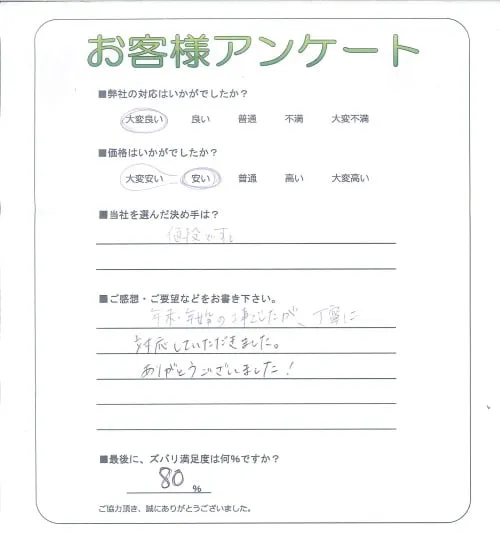 お客様アンケート
■弊社の対応はいかがでしたか？
大変良い 良い 普通 不満 大変不満
■価格はいかがでしたか？
大変安い 安い 普通 高い 大変高い
■当社を選んだ決め手は？
値段です
■ご感想・ご要望などをお書き下さい。
年末・年始の事でしたが、丁寧に
対応していただきました。
ありがとうございました！
■最後に、ズバリ満足度は何%ですか？
80 %
ご協力頂き、誠にありがとうございました。